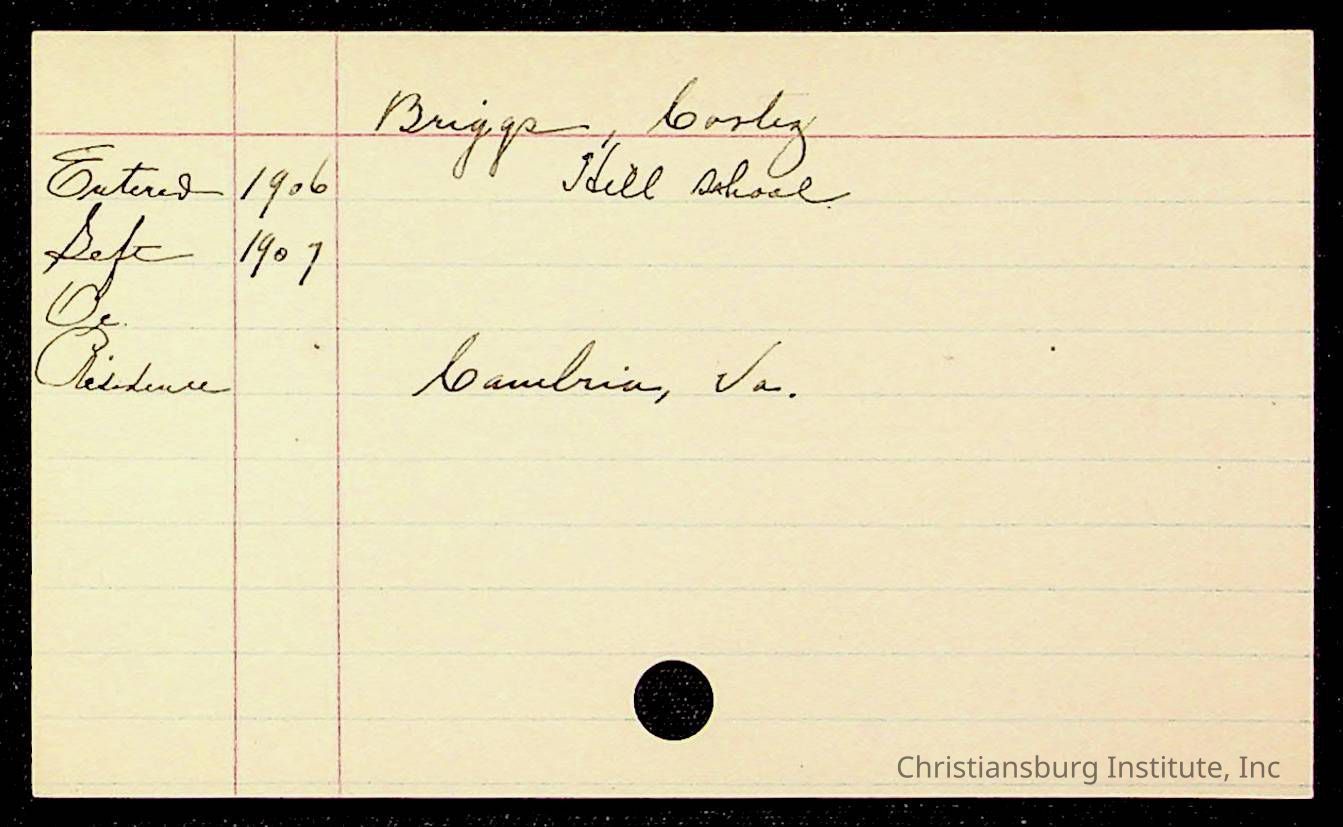 Briggs, Cortez
Entered 1906 Hill School
Left 1907
Residence Cambria, Va.
Christiansburg Institute, Inc